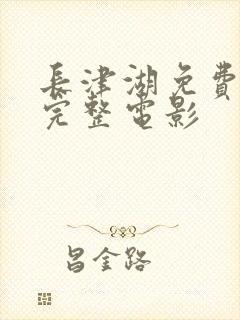 長津湖免費
完整電影
昌金路